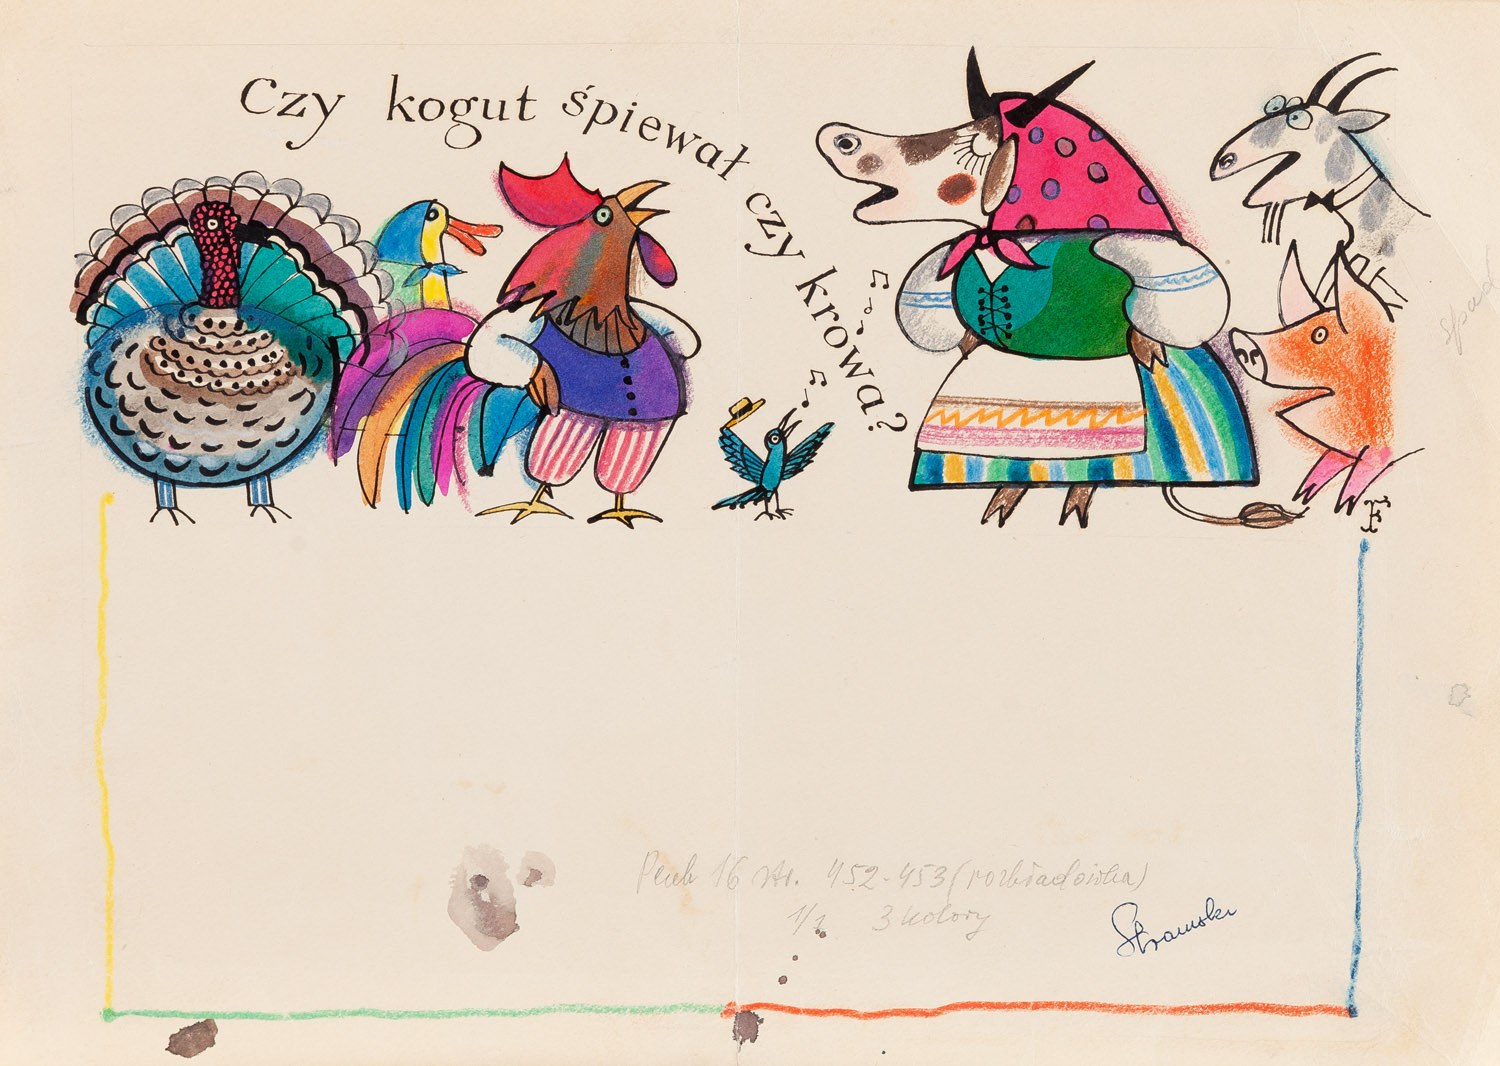 Czy kogut śpiewał czy krowa?
TF
16 str. 452-453 (rozkładówka)
1/1 3 kolory
spad